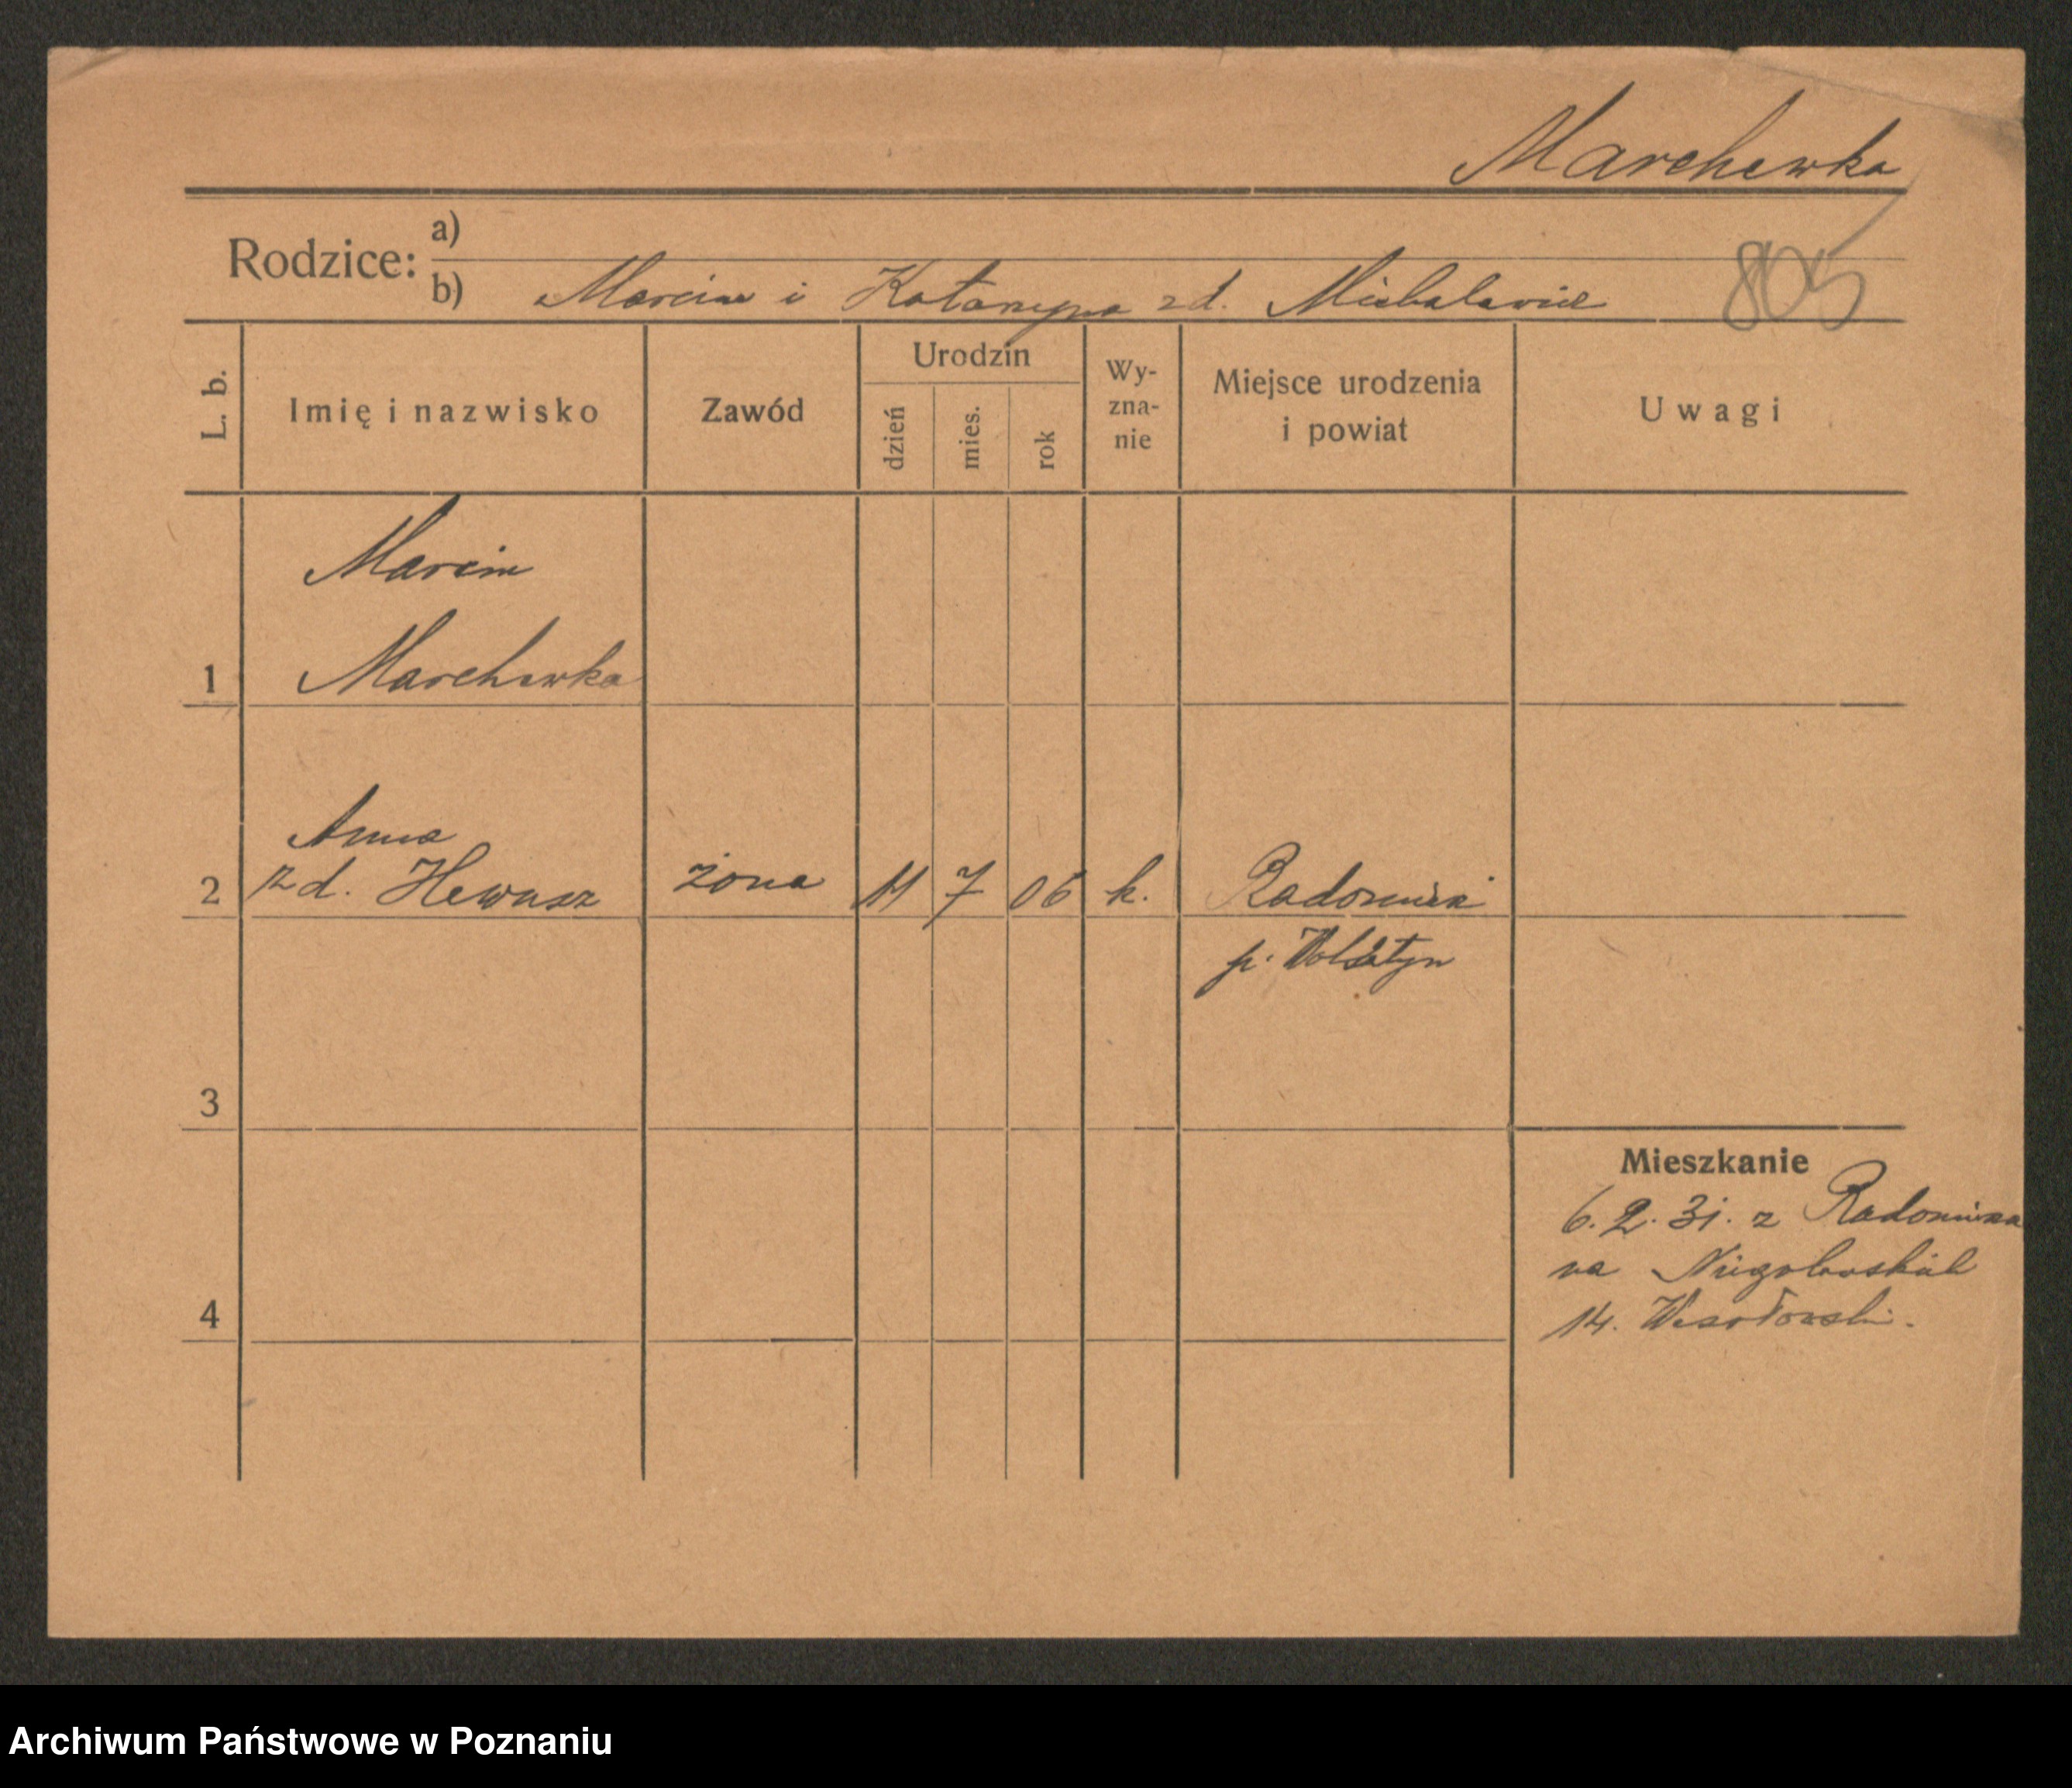 Marchewka
Rodzice: a)
b) Marcin i Katarzyna zd. Michalewicz
805
L. b. Imię i nazwisko Zawód Urodzin dzień mies. rok Wy-zna-nie Miejsce urodzenia i powiat Uwagi
Marcin
1 Marchewka
Anna
2 zd. Hewusz żona 11 7 06 k. Radomierz
p. Wolsztyn
3
Mieszkanie
6. 2. 31. z Radomierza
na
4
14. Wesołowski.
Archiwum Państwowe w Poznaniu